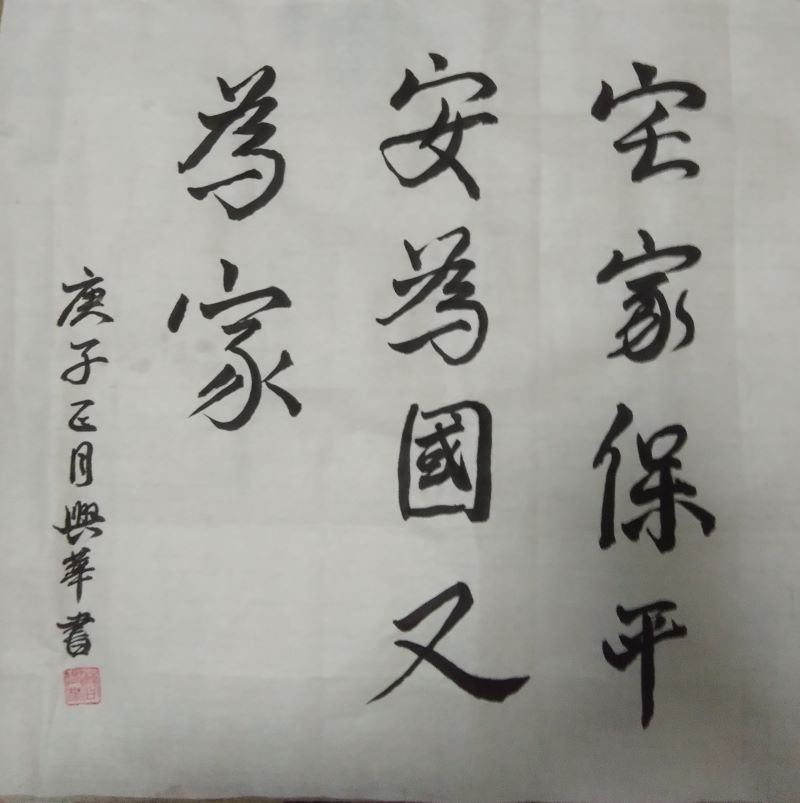 宅家保平
安為國又
為家
庚子正月興華書